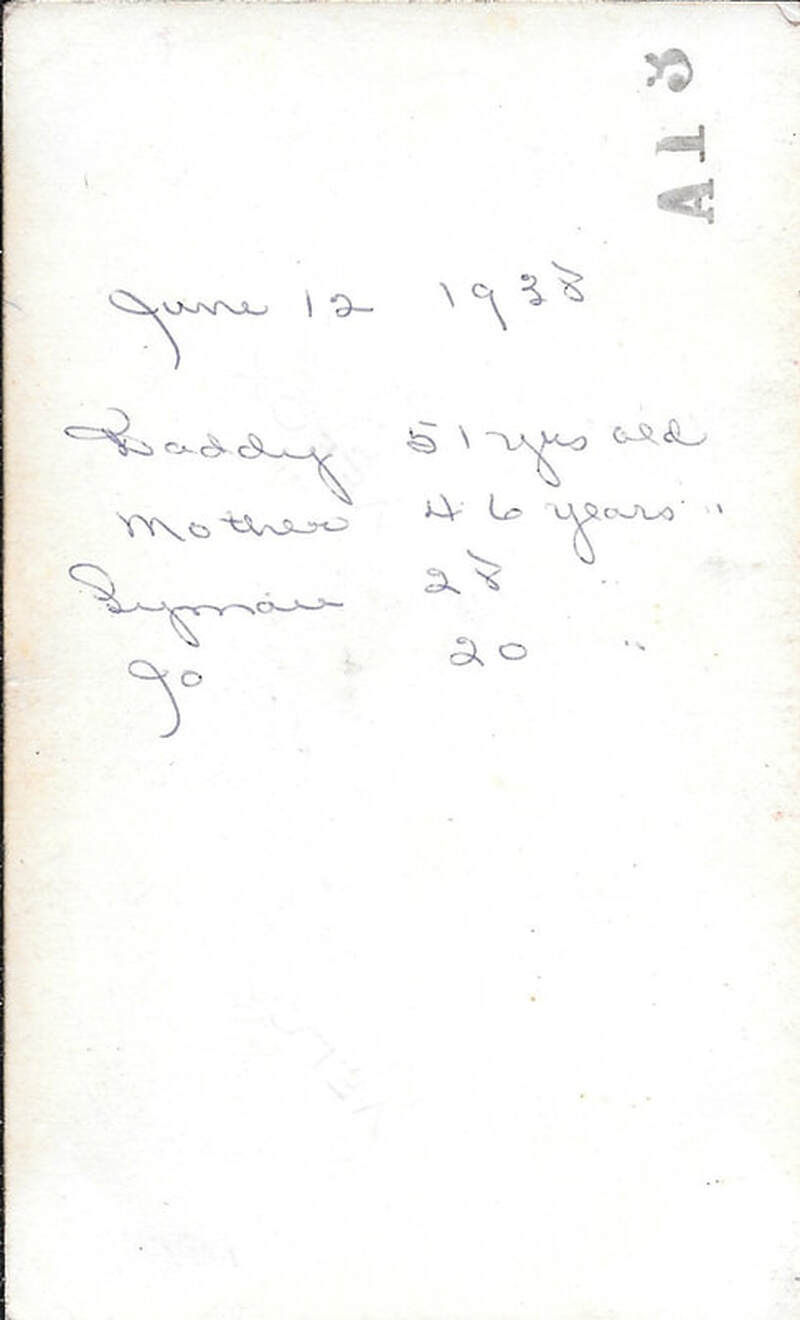 A15
June 12 1938
Daddy 51 yrs old
Mother 46 years "
28 "
Jo 20 "